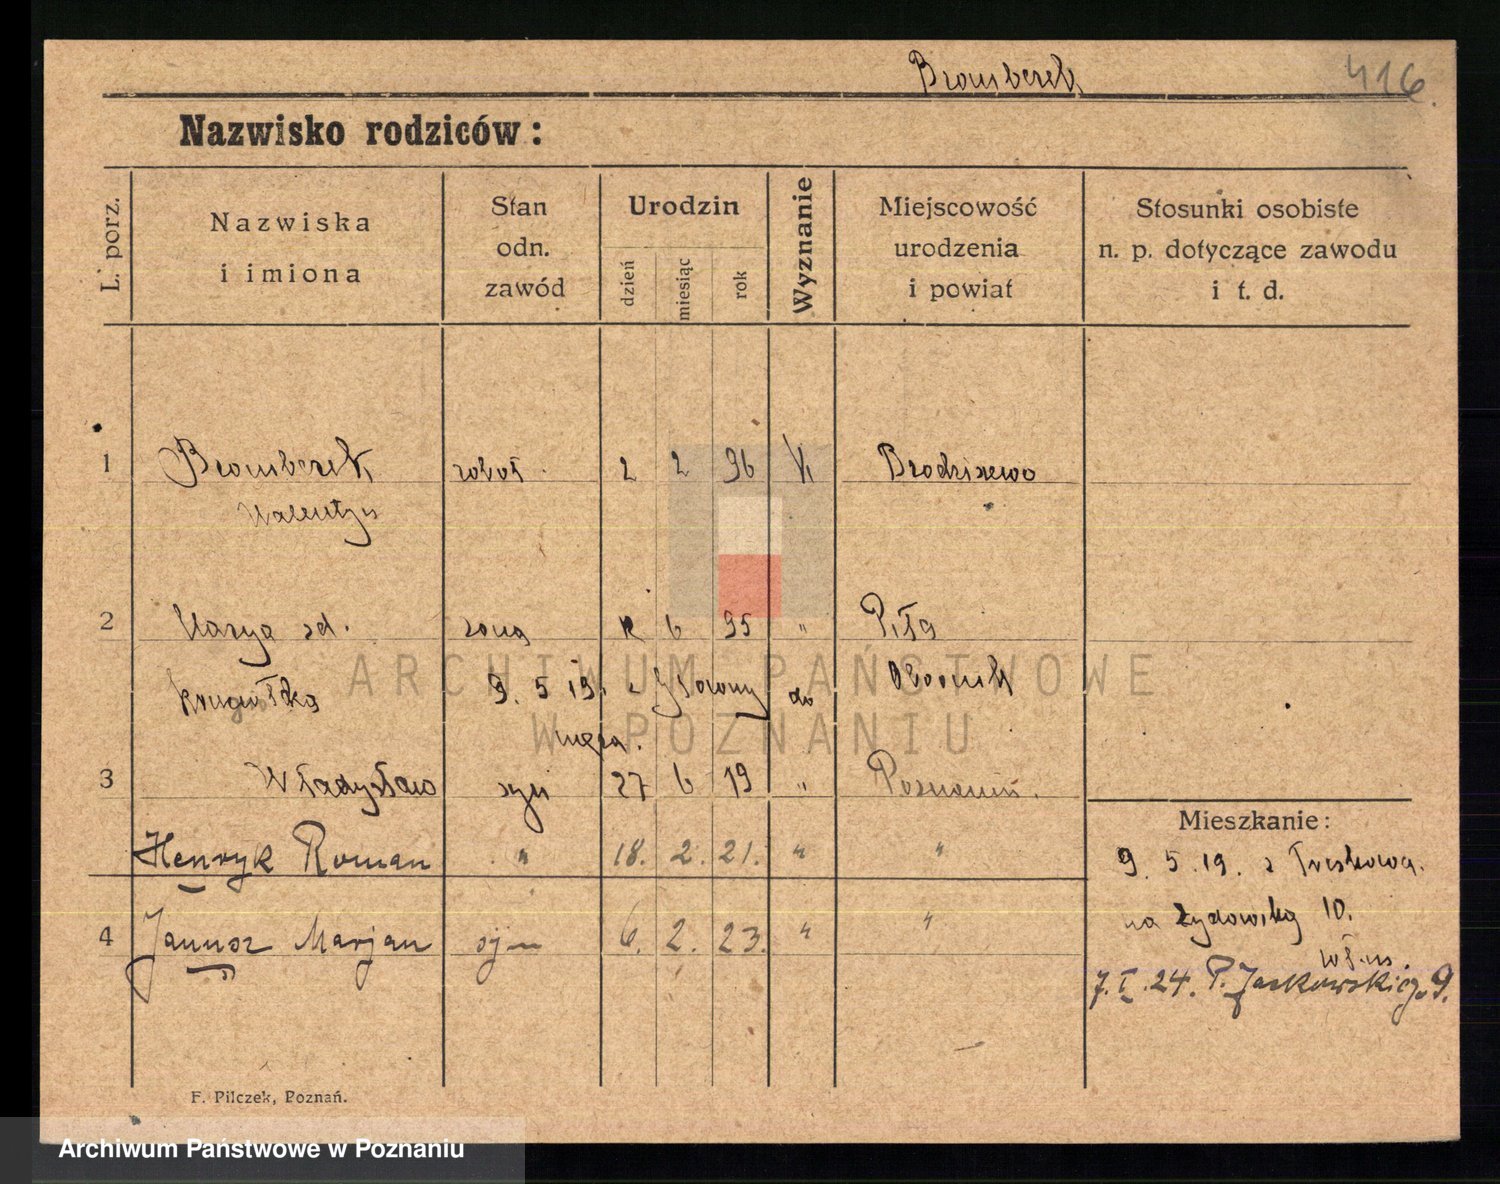 Bromberek
416.
Nazwisko rodziców:
L. porz.
Nazwiska
i imiona
Stan
odn.
zawód
Urodzin
dzień
miesiąc
rok
Wyznanie
Miejscowość
urodzenia
i powiat
Stosunki osobiste
n. p. dotyczące zawodu
i t. d.
1 Bromberek robot. 2 2 96 K Brodziszewo
Walentyn
2 Marya zd. żona 6 95 " Piła
9. 5 19. z do Obornik
męża.
3 Władysław syn 27 6 19 " Poznaniu.
Henryk Roman " 18. 2. 21. " "
4 Janusz Marjan syn 6. 2. 23. " "
Mieszkanie:
9. 5. 19. z Treskowa.
na Żydowską 10.
7. I. 24. P. Jackowskiego 9.
F. Pilczek, Poznań.
ARCHIWUM PAŃSTWOWE
W POZNANIU
Archiwum Państwowe w Poznaniu